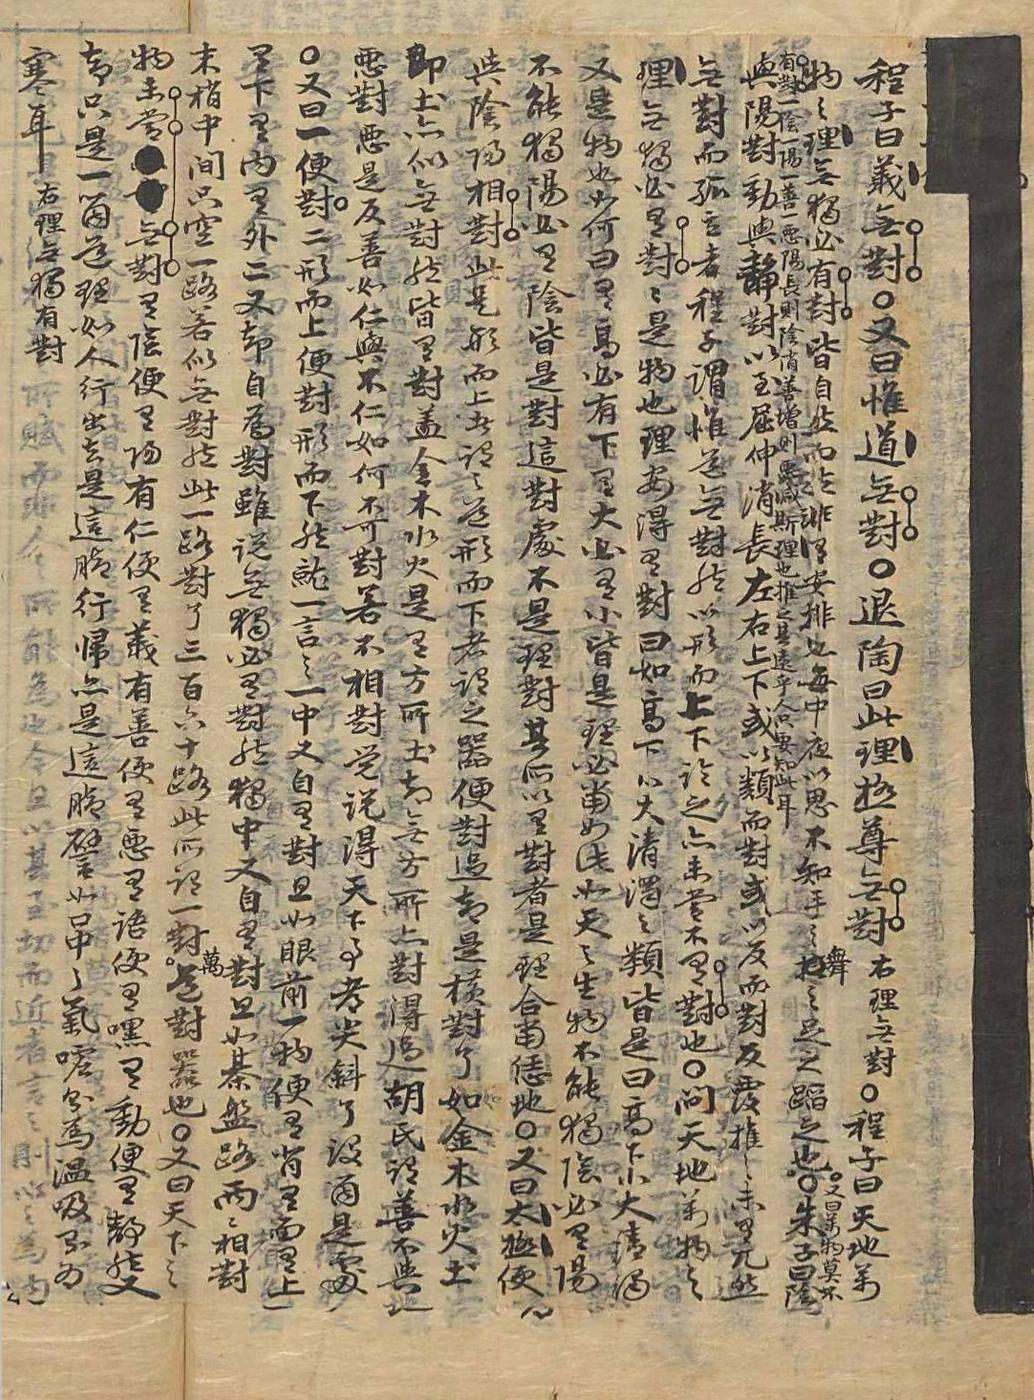 程子曰義無對○又曰惟道無對○退陶曰此理極尊無對右理無對○程子曰天地萬
物之理無獨必有對皆自然而然非有安排也每中夜以思不知手之舞之足之蹈之也○又曰萬物莫不
有對一陰一陽一善一惡陽長則陰消善增則惡減斯理也推之其遠乎人只要知此耳○朱子曰陰
與陽對動與靜對以至屈伸消長左右上下或以類而對或以反而對反覆推之未有兀然
無對而孤立者程子謂惟道無對然以形而上下論之亦未嘗不有對也○問天地萬物之
理無獨必有對對是物也理安得有對曰如高下小大清濁之類皆是曰高下小大清濁
又是物也如何曰有高必有下有大必有小皆是理必當如此如天之生物不能獨陰必有陽
不能獨陽必有陰皆是對這對處不是理對其所以有對者是理合當恁地○又曰太極便
與陰陽相對此是形而上者謂之道形而下者謂之器便對過却是橫對了如金木水火土
即土亦似無對然皆有對蓋金木水火是有方所土却無方所亦對得過胡氏謂善不與
惡對惡是反善如仁與不仁如何不可對若不相對覺說得天下事都尖斜了沒箇是處
○又曰一便對二形而上便對形而下然就一言之一中又自有對且如眼前一物便有背有面有上
有下有內有外二又却自爲對雖說無獨必有對然獨中又自有對且如棊盤路兩兩相對
末梢中間只空一路若似無對然此一路對了三百六十路此所謂一對萬道對器也○又曰天下之
物未嘗無對有陰便有陽有仁便有義有善便有惡有語便有嘿有動便有靜然又
却只是一箇道理如人行出去是這脚行歸亦是這脚譬如口中之氣噓則爲溫吸則爲
寒耳右理無獨有對